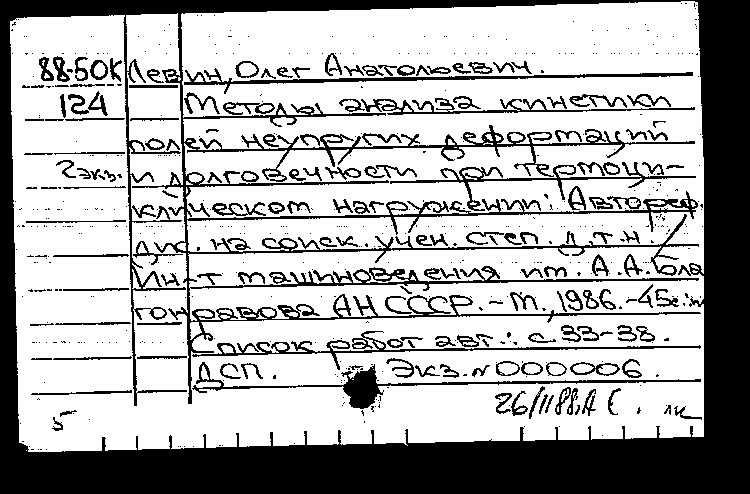 88-50К Левин, Олег Анатольевич.
124 Методы анализа кинетики
полей неупругих деформаций
2экз. и долговечности при термоци-
клическом нагружении: Автореф.
дис. на соиск. учен. степ. д.т.н. /
Ин-т машиноведения им. А.А.Бла
гонравова АН СССР. - М., 1986. - 45с.:
Список работ авт.: с.33-38.
ДСП. Экз.N 000006.
5